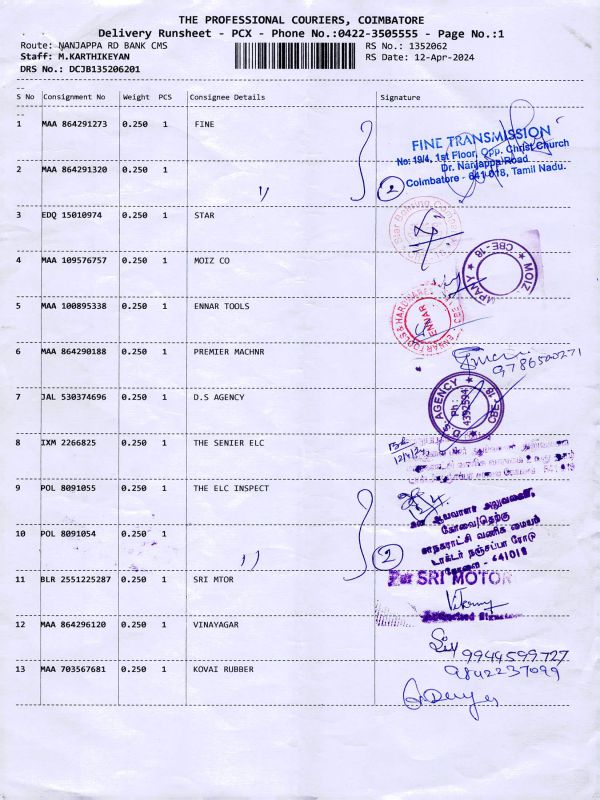 THE PROFESSIONAL COURIERS, COIMBATORE
Delivery Runsheet - PCX - Phone No.:0422-3505555 - Page No.:1
Route: NANJAPPA RD BANK CMS
RS No.: 1352062
Staff: M.KARTHIKEYAN
RS Date: 12-Apr-2024
DRS No.: DCJB135206201
S No Consignment No Weight PCS Consignee Details Signature
1 MAA 864291273 0.250 1 FINE
FINE TRANSMISSION
No: 19/4, 1st Floor, Opp. Christ Church
Dr. Nanjappa Road
Coimbatore - 641 018, Tamil Nadu.
2 MAA 864291320 0.250 1 2
3 EDQ 15010974 0.250 1 STAR
4 MAA 109576757 0.250 1 MOIZ CO
MOIZ CBE-18
5 MAA 100895338 0.250 1 ENNAR TOOLS
ENNAR
6 MAA 864290188 0.250 1 PREMIER MACHNR
9786500271
7 JAL 530374696 0.250 1 D.S AGENCY
D.S AGENCY CBE-18
Ph : 4392594
8 IXM 2266825 0.250 1 THE SENIER ELC
12/4/24
9 POL 8091055 0.250 1 THE ELC INSPECT
12/4
10 POL 8091054 0.250 1 2
கோவை/தெற்கு
மாநகராட்சி வணிக மையம்
டாக்டர் நஞ்சப்பா ரோடு
கோவை - 641018
11 BLR 2551225287 0.250 1 SRI MTOR
For SRI MOTOR
12 MAA 864296120 0.250 1 VINAYAGAR
9944599727
13 MAA 703567681 0.250 1 KOVAI RUBBER
9842237099